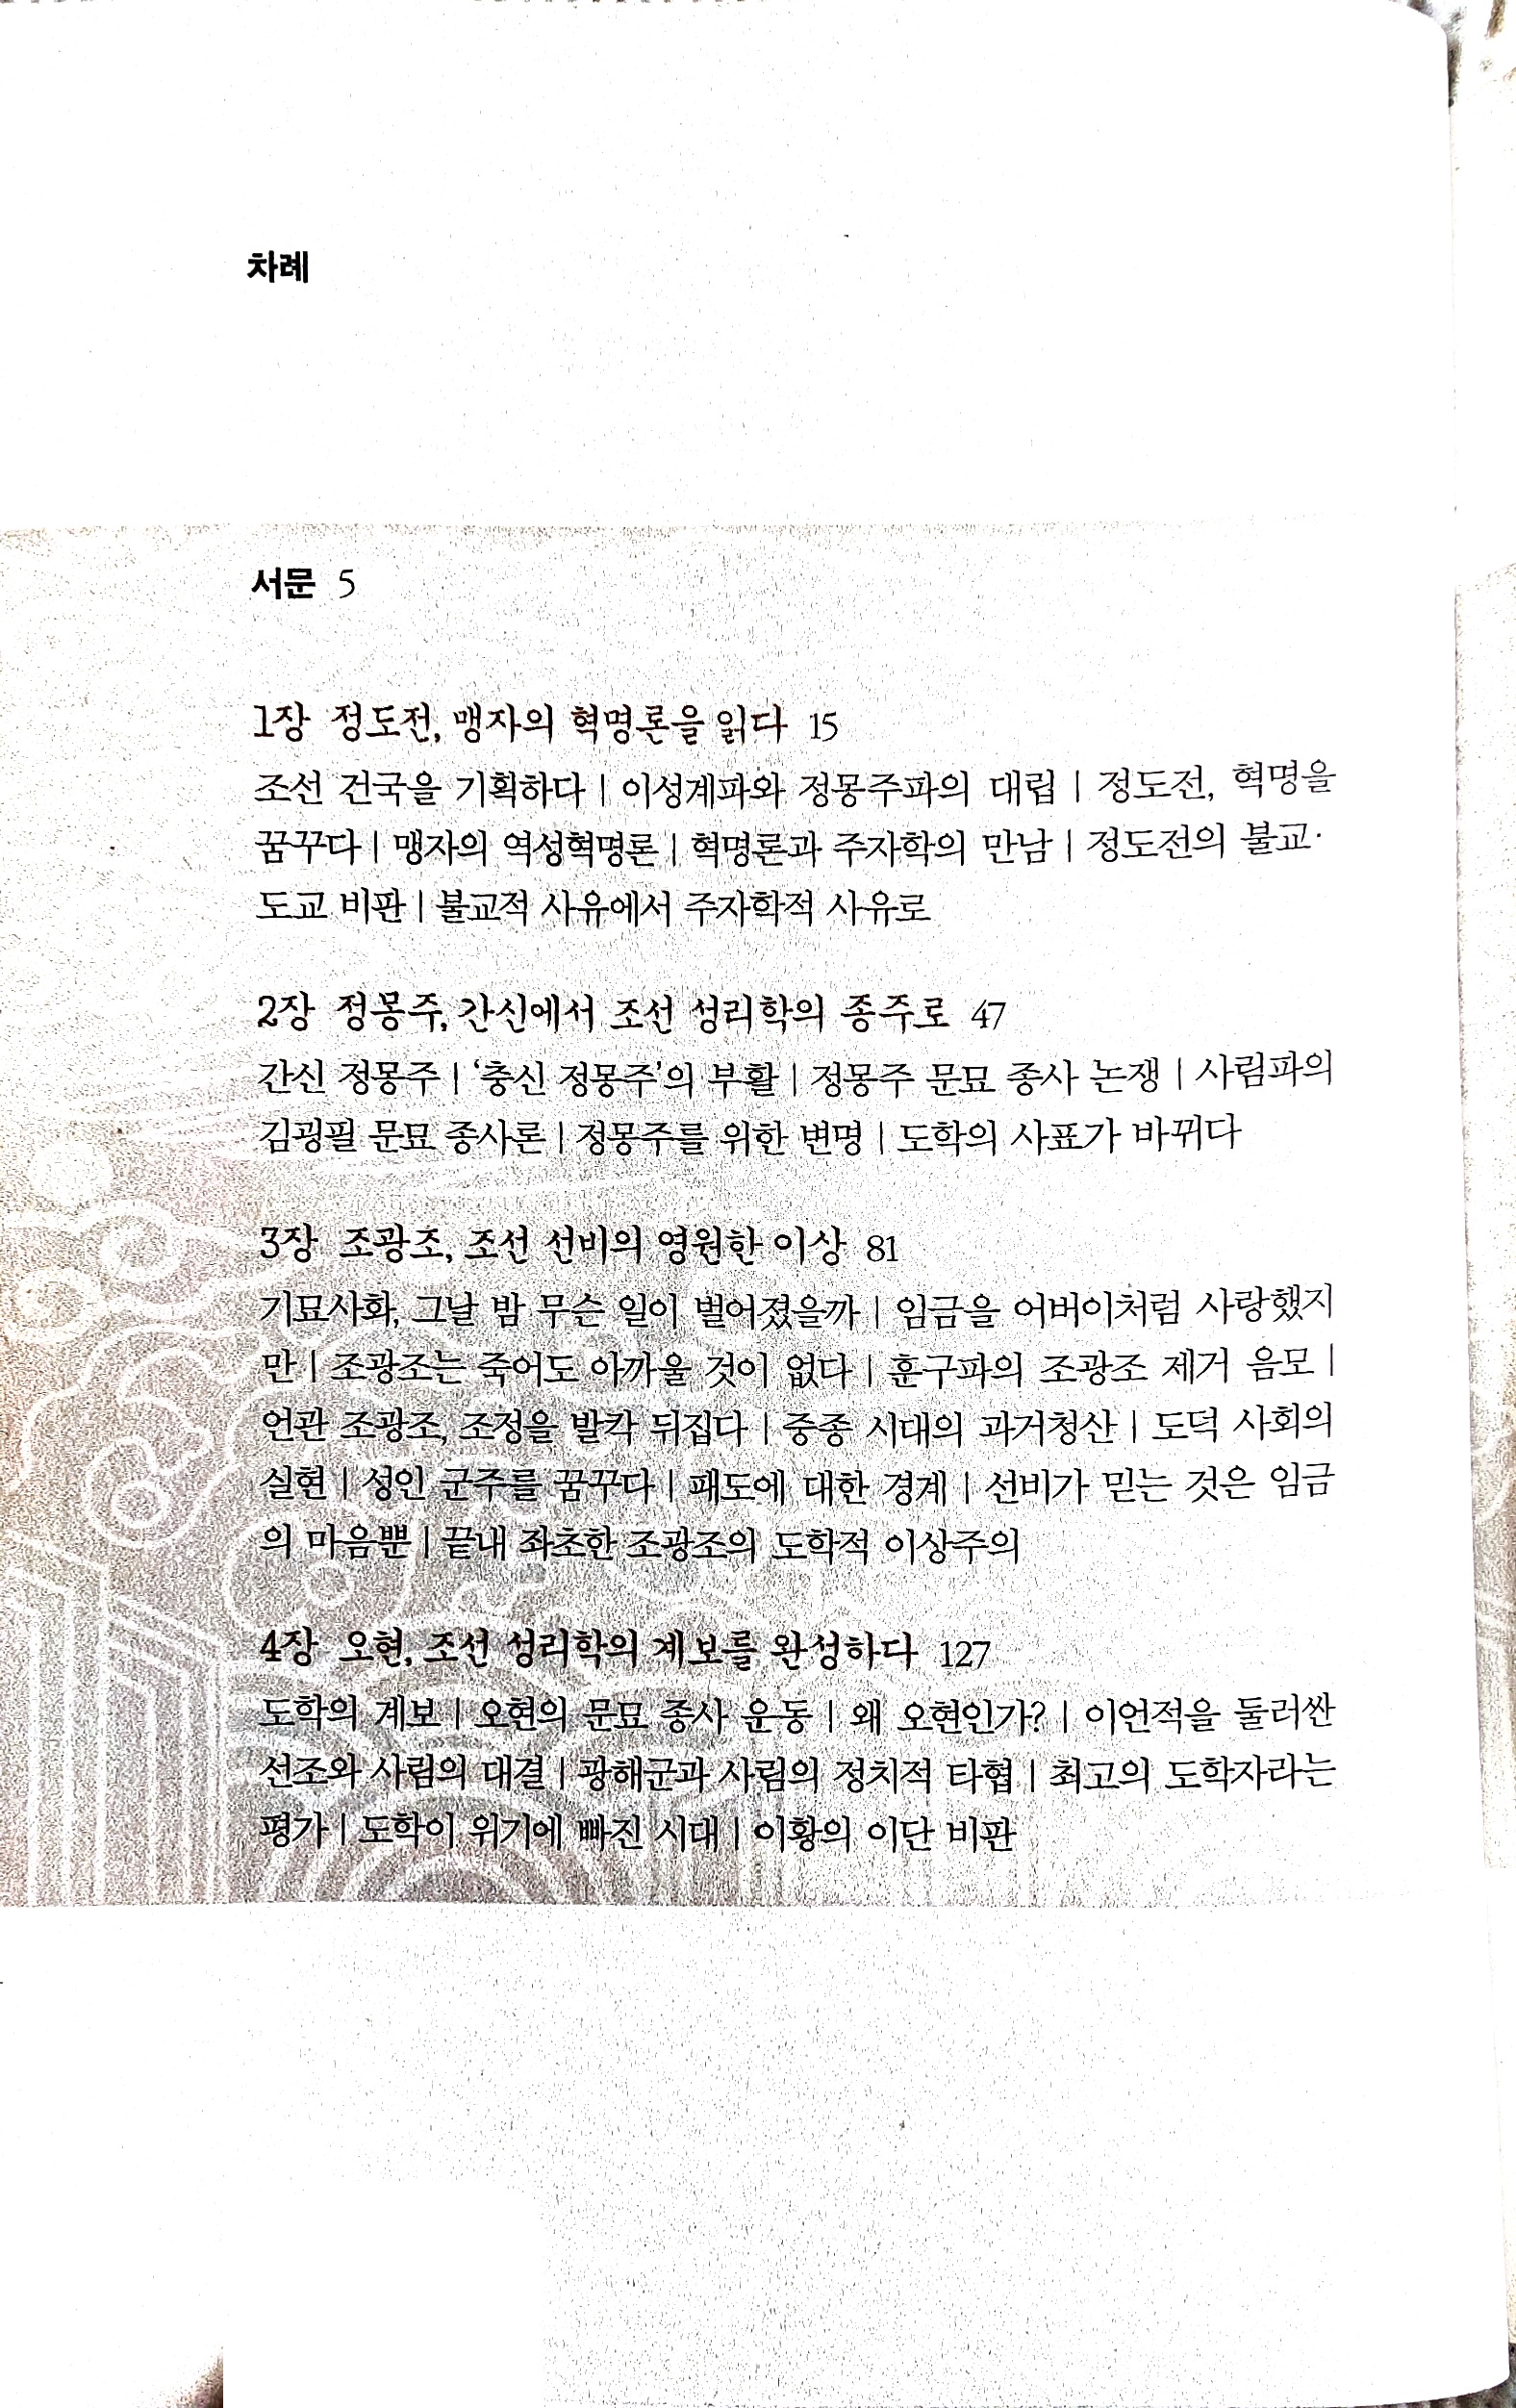 차례
서문 5
1장 정도전, 맹자의 혁명론을 읽다 15
조선 건국을 기획하다 | 이성계파와 정몽주파의 대립 | 정도전, 혁명을
꿈꾸다 | 맹자의 역성혁명론 | 혁명론과 주자학의 만남 | 정도전의 불교·
도교 비판 | 불교적 사유에서 주자학적 사유로
2장 정몽주, 간신에서 조선 성리학의 종주로 47
간신 정몽주 | ‘충신 정몽주’의 부활 | 정몽주 문묘 종사 논쟁 | 사림파의
김굉필 문묘 종사론 | 정몽주를 위한 변명 | 도학의 사표가 바뀌다
3장 조광조, 조선 선비의 영원한 이상 81
기묘사화, 그날 밤 무슨 일이 벌어졌을까 | 임금을 어버이처럼 사랑했지
만 | 조광조는 죽어도 아까울 것이 없다 | 훈구파의 조광조 제거 음모 |
언관 조광조, 조정을 발칵 뒤집다 | 중종 시대의 과거청산 | 도덕 사회의
실현 | 성인 군주를 꿈꾸다 | 패도에 대한 경계 | 선비가 믿는 것은 임금
의 마음뿐 | 끝내 좌초한 조광조의 도학적 이상주의
4장 오현, 조선 성리학의 계보를 완성하다 127
도학의 계보 | 오현의 문묘 종사 운동 | 왜 오현인가? | 이언적을 둘러싼
선조와 사림의 대결 | 광해군과 사림의 정치적 타협 | 최고의 도학자라는
평가 | 도학이 위기에 빠진 시대 | 이황의 이단 비판